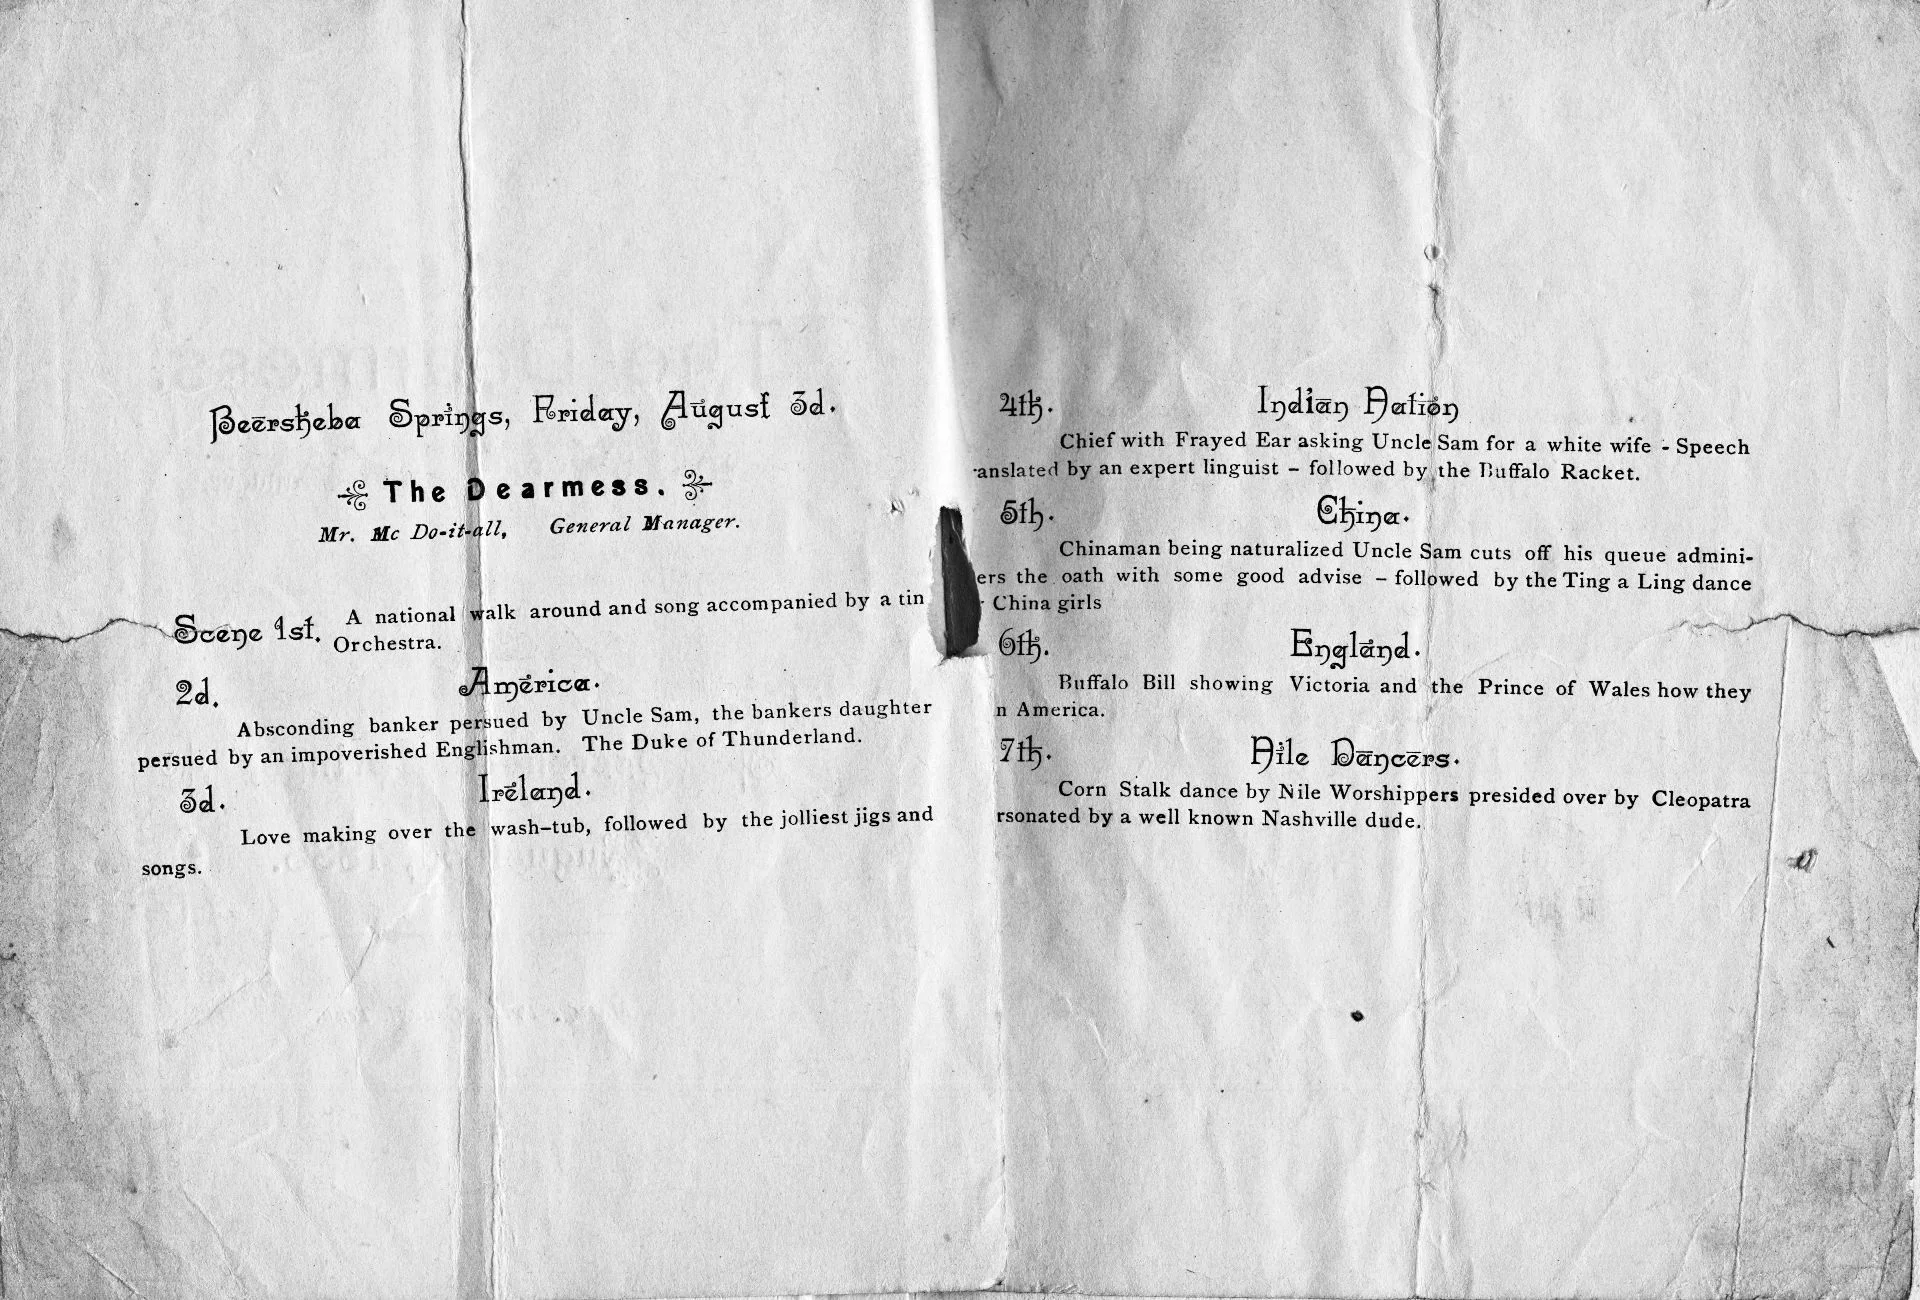 Beersheba Springs, Friday, August 3d.
The Dearmess.
Mr. Mc Do-it-all, General Manager.
Scene 1st. A national walk around and song accompanied by a tin
Orchestra.
2d. America.
Absconding banker persued by Uncle Sam, the bankers daughter
persued by an impoverished Englishman. The Duke of Thunderland.
3d. Ireland.
Love making over the wash-tub, followed by the jolliest jigs and
songs.
4th. Indian Nation
Chief with Frayed Ear asking Uncle Sam for a white wife - Speech
anslated by an expert linguist - followed by the Buffalo Racket.
5th. China.
Chinaman being naturalized Uncle Sam cuts off his queue admini-
ers the oath with some good advise - followed by the Ting a Ling dance
China girls
6th. England.
Buffalo Bill showing Victoria and the Prince of Wales how they
n America.
7th. Nile Dancers.
Corn Stalk dance by Nile Worshippers presided over by Cleopatra
rsonated by a well known Nashville dude.